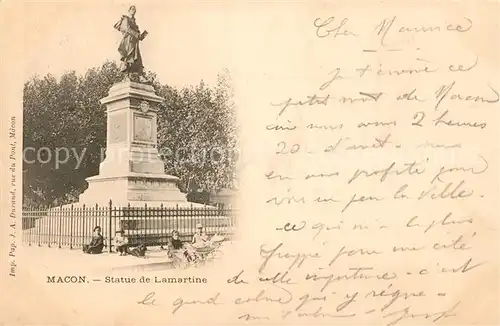 Cher Maurice
je t'envoie ce
petit mot de Macon
où nous avons 2 heures
20 d'arrêt. nous
en avons profité pour
voir un peu la ville.
ce qui m'a le plus
frappé pour une cité
de cette importance c'est
le grand calme qui y règne
MACON. — Statue de Lamartine
Imp. Pap. J. A. Durand, rue du Pont, Mâcon